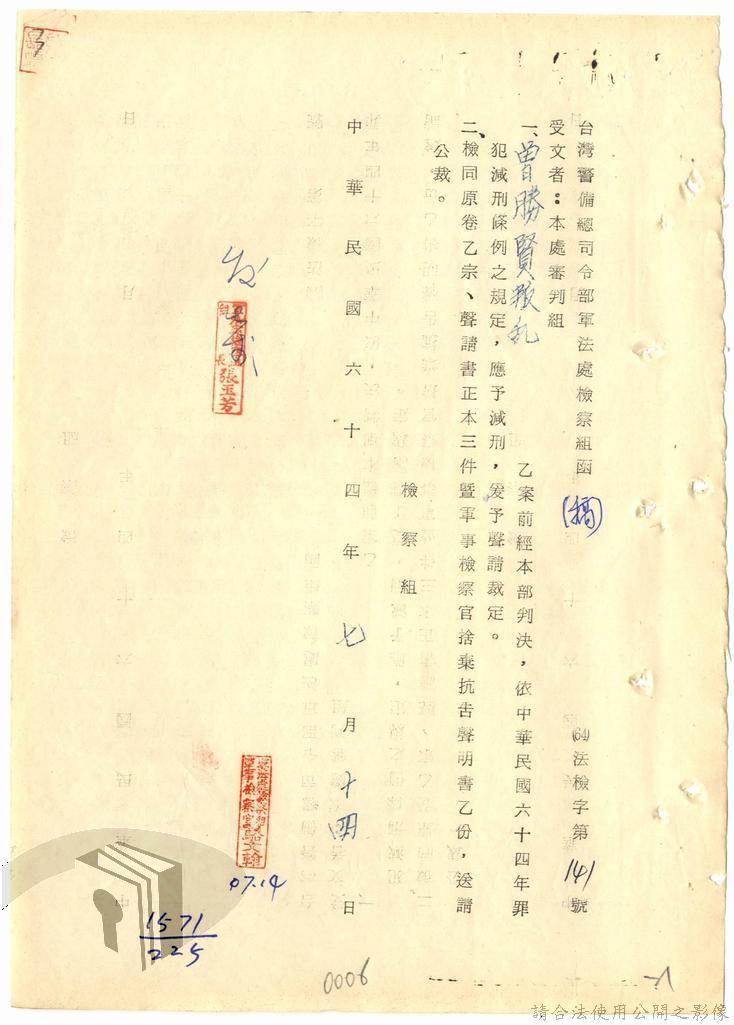 台灣警備總司令部軍法處檢察組函(稿) (64)法檢字第141號
受文者：本處審判組
一、曾勝賢叛乱乙案前經本部判決，依中華民國六十四年罪
犯減刑條例之規定，應予減刑，爰予聲請裁定。
二、檢同原卷乙宗、聲請書正本三件暨軍事檢察官捨棄抗告聲明書乙份，送請
公裁。
檢察組
中華民國六十四年七月十四日
發
組長張玉芳
軍事檢察官駱文翰
07.14
1571
225
0006
請合法使用公開之影像